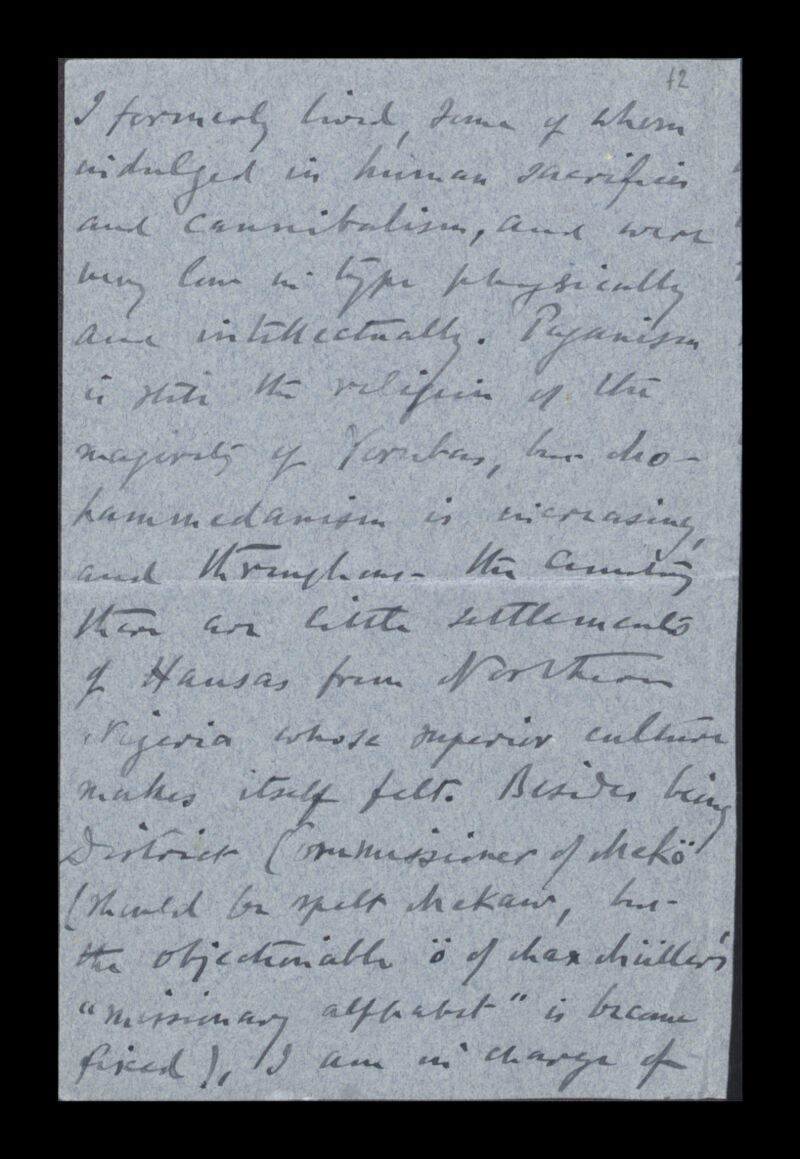 12
I formerly lived, some of whom
indulged in human sacrifices
and cannibalism, and were
very low in type physically
and intellectually. Paganism
is still the religion of the
majority of Yorubas, but Mo-
hammedanism is increasing,
and throughout the country
there are little settlements
of Hausas from Northern
Nigeria whose superior culture
makes itself felt. Besides being
District Commissioner of Mekö
(should be spelt Mekaw, but
the objectionable ö of Max Müller's
"missionary alphabet" is become
fixed), I am in charge of